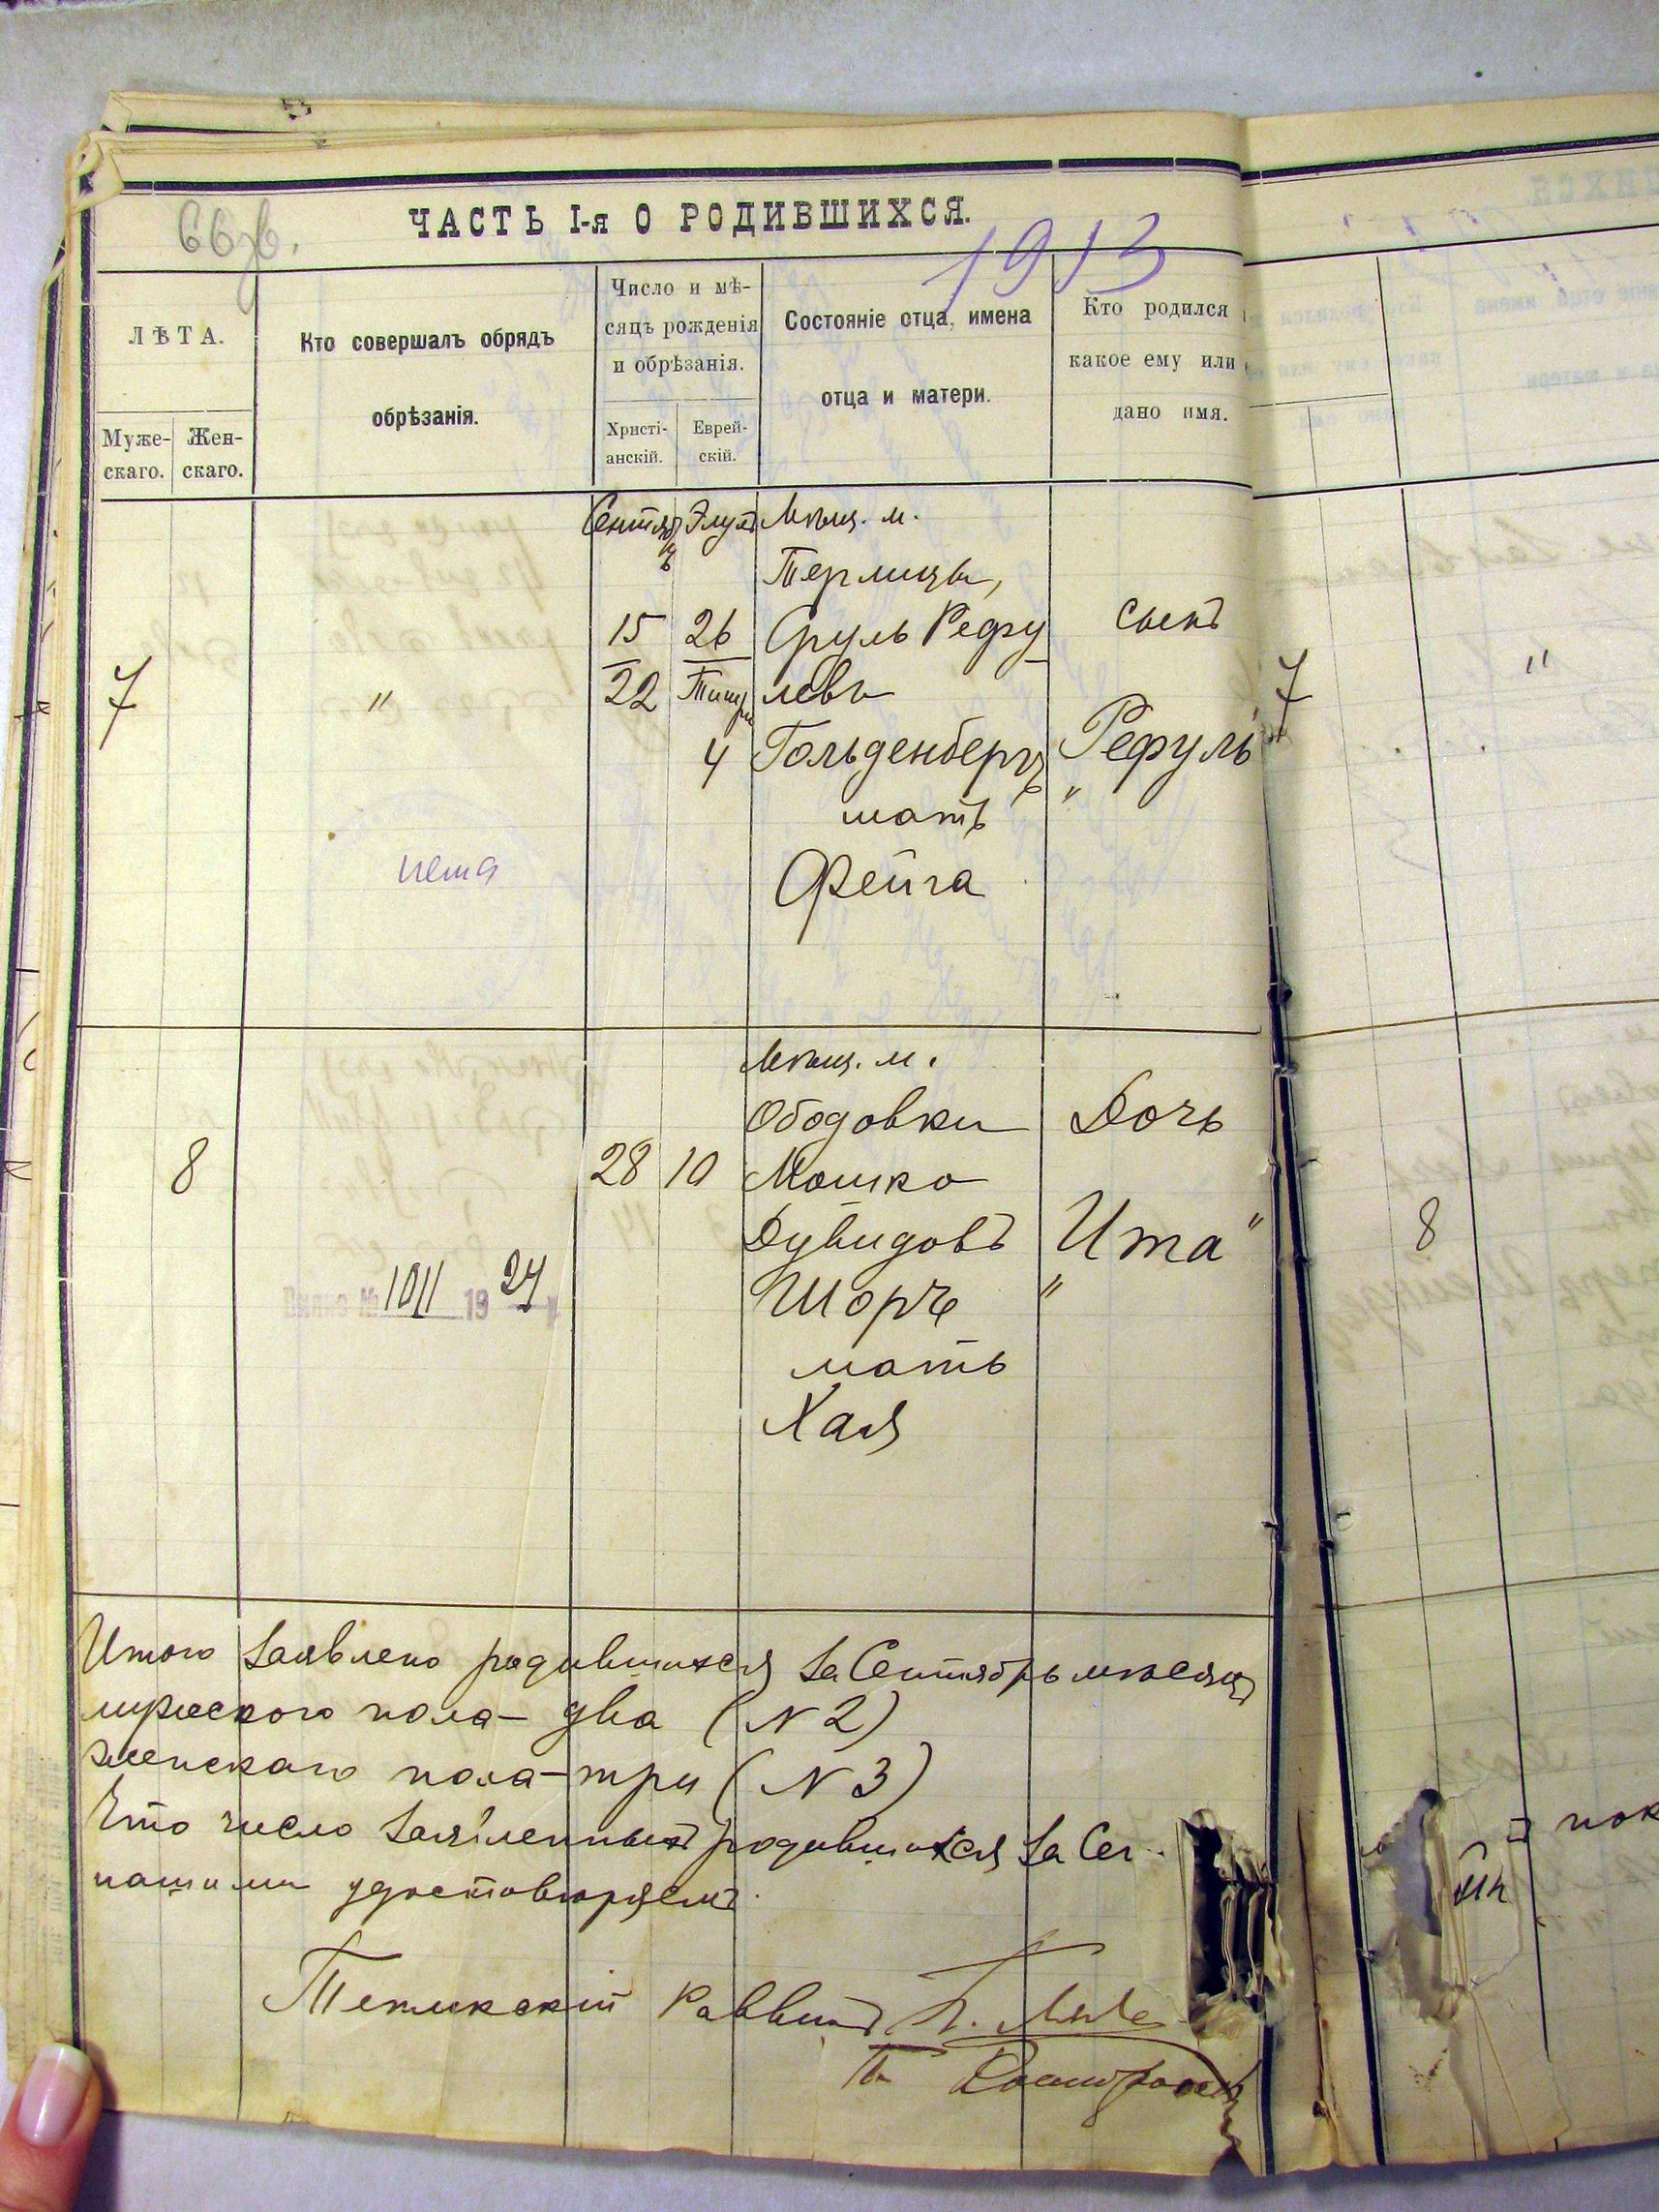 66 об.
ЧАСТЬ I-я О РОДИВШИХСЯ.
1913
ЛѢТА.
Муже-
скаго.
Жен-
скаго.
Кто совершалъ обрядъ
обрѣзанія.
Число и мѣ-
сяцъ рожденія
и обрѣзанія.
Христі-
анскій.
Еврей-
скій.
Состояніе отца, имена
отца и матери.
Кто родился и
какое ему или
дано имя.
7
"
Сентябрь
15
22
Элулъ
26
Тишри
4
Мѣщ. м.
Терлицы,
Сруль Рефу
левъ
Гольденбергъ
мать
Фейга
сынъ
Рефуль
"
7
"
8
28
10
Мѣщ. м.
Ободовки
Мошко
Дувидовъ
Шоръ
мать
Хая
Дочь
Ита"
"
8
№ 1011 1924
Итого заявлено родившихся за Сентябрь мѣсяцъ
мужескаго пола - два (N 2)
женскаго пола - три (N 3)
Что число заявленныхъ родившихся за Сен
нашими удостовѣряемъ.
Тепликскій Раввинъ